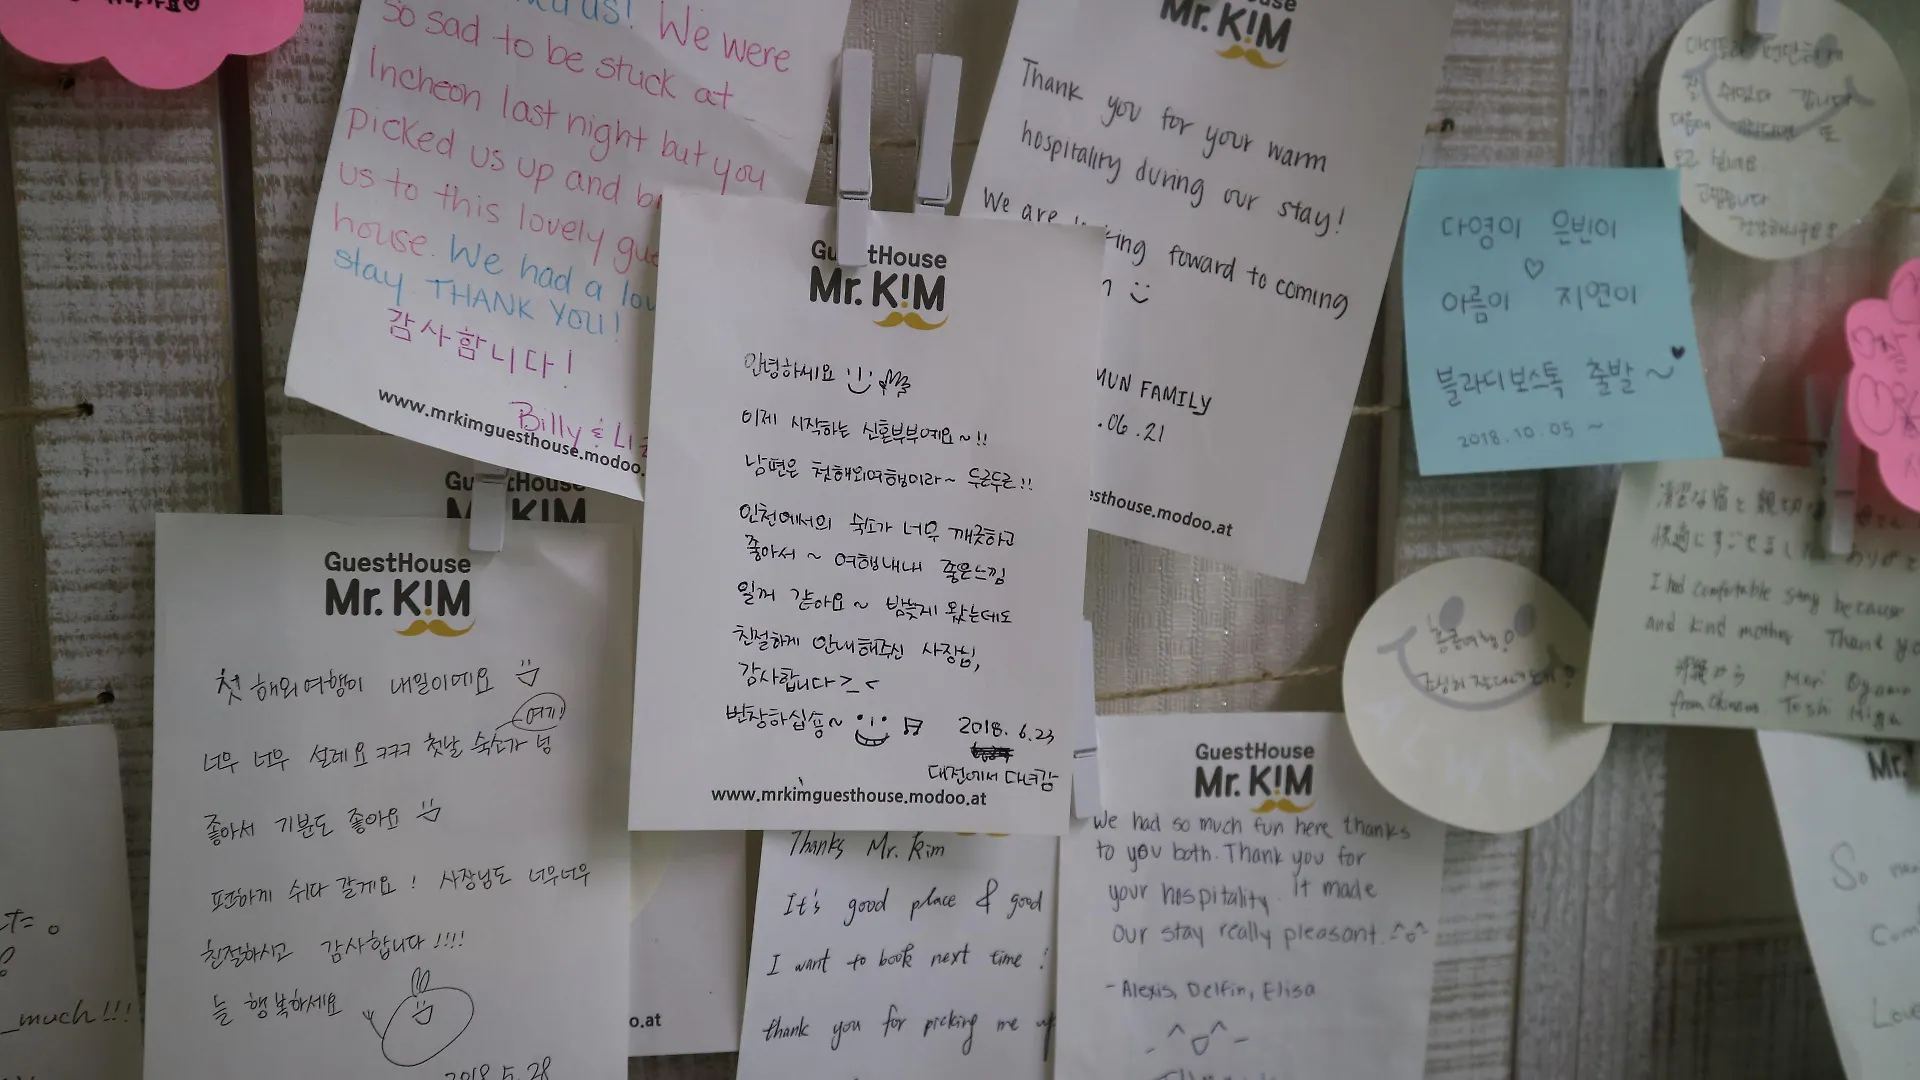 us! We were
so sad to be stuck at
Incheon last night but you
picked us up and
us to this lovely
house. We had a
stay. THANK YOU!
감사합니다!
Billy &
www.mrkimguesthouse.modoo.
Mr. K!M
Thank you for your warm
hospitality during our stay!
We are
forward to coming
FAMILY
.06.21
.modoo.at
GuestHouse
Mr. K!M
안녕하세요
이제 시작하는 신혼부부예요~!!
남편은 첫해외여행이라~ 두근두근!!
인천에서의 숙소가 너무 깨끗하고
좋아서~ 여행내내 좋은느낌
일꺼 같아요~ 밤늦게 왔는데도
친절하게 안내해주신 사장님,
감사합니다>_<
번창하십숑~
2018. 6.23
대전에서 다녀감
www.mrkimguesthouse.modoo.at
다영이 은빈이
♡
아름이 지연이
블라디보스톡 출발~
2018.10.05~
GuestHouse
Mr. K!M
GuestHouse
Mr. K!M
첫 해외여행이 내일이예요
(여기)
너무 너무 설레요 ㅋㅋㅋ 첫날 숙소가 넘
좋아서 기분도 좋아요
푹 쉬다 갈게요! 사장님도 너무너무
친절하시고 감사합니다!!!!
늘 행복하세요
2018.5.28
much!!!
o.at
Thanks Mr. Kim
It's good place & good
I want to book next time!
thank you for picking me up
GuestHouse
Mr. K!M
We had so much fun here thanks
to you both. Thank you for
your hospitality. It made
our stay really pleasant. ^o^
-Alexis, Delfin, Elisa
清潔な宿と親切
快適にすごせました
I had comfortable stay because
and kind mother Thank you
沖縄から Mari
from Okinawa Toshi
Mr.
So